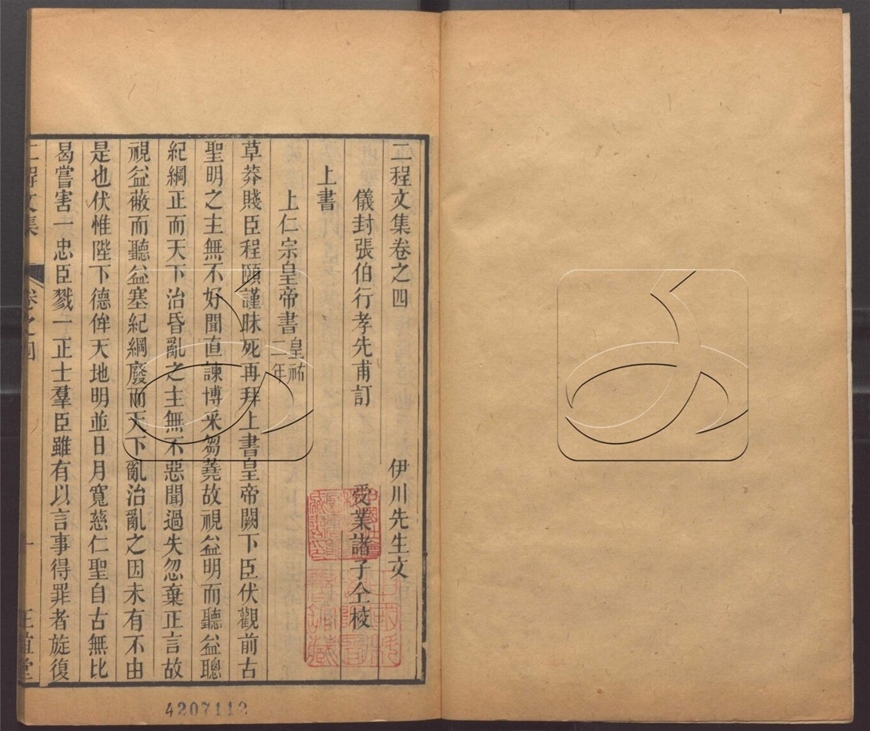 二程文集卷之四
伊川先生文
儀封張伯行孝先甫訂
受業諸子仝校
上書
上仁宗皇帝書皇祐二年
草莽賤臣程頤謹昧死再拜上書皇帝闕下臣伏觀前古
聖明之主無不好聞直諫博采芻蕘故視益明而聽益聰
紀綱正而天下治昏亂之主無不惡聞過失忽棄正言故
視益蔽而聽益塞紀綱廢而天下亂治亂之因未有不由
是也伏惟陛下德侔天地明並日月寬慈仁聖自古無比
曷嘗害一忠臣戮一正士羣臣雖有以言事得罪者旋復
二程文集
卷之四
一
正誼堂
4207112